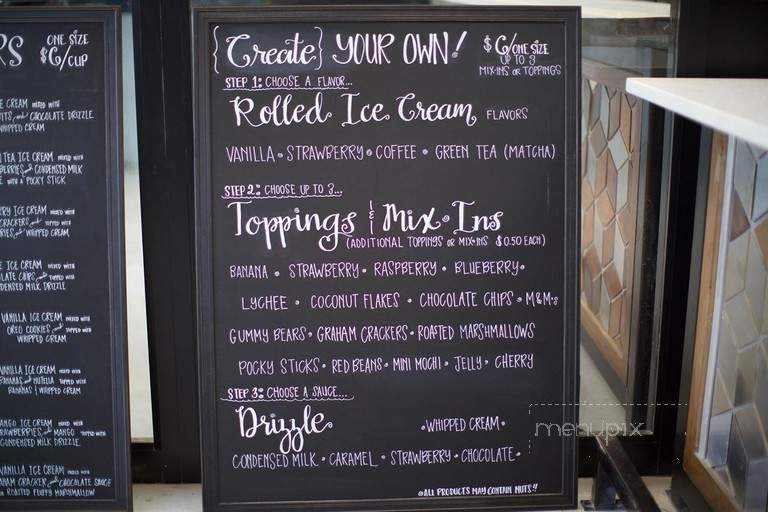 RS
ONE SIZE
$6/CUP
E CREAM MIXED WITH
ITS, and CHOCOLATE DRIZZLE
WHIPPED CREAM
TEA ICE CREAM MIXED WITH
BERRIES and CONDENSED MILK
WITH A POCKY STICK
RRY ICE CREAM MIXED WITH
CRACKERS, and TOPPED WITH
RIES and WHIPPED CREAM
E ICE CREAM MIXED WITH
LATE CHIPS, and TOPPED WITH
DENSED MILK DRIZZLE
VANILLA ICE CREAM MIXED WITH
OREO COOKIES and TOPPED WITH
WHIPPED CREAM
VANILLA ICE CREAM MIXED WITH
BANANAS and NUTELLA TOPPED WITH
BANANAS & WHIPPED CREAM
MANGO ICE CREAM MIXED WITH
STRAWBERRIES and MANGO TOPPED WITH
CONDENSED MILK DRIZZLE
VANILLA ICE CREAM MIXED WITH
CRACKER and CHOCOLATE SAUCE
ROASTED FLUFFY MARSHMALLOW
{Create} YOUR OWN!
$6/ONE SIZE
UP TO 3
MIX-INS OR TOPPINGS
STEP 1: CHOOSE A FLAVOR...
Rolled Ice Cream FLAVORS
VANILLA • STRAWBERRY • COFFEE • GREEN TEA (MATCHA)
STEP 2: CHOOSE UP TO 3...
Toppings & Mix-Ins
(ADDITIONAL TOPPINGS OR MIX-INS $0.50 EACH)
BANANA • STRAWBERRY • RASPBERRY • BLUEBERRY •
LYCHEE • COCONUT FLAKES • CHOCOLATE CHIPS • M&M's
GUMMY BEARS • GRAHAM CRACKERS • ROASTED MARSHMALLOWS
POCKY STICKS • RED BEANS • MINI MOCHI • JELLY • CHERRY
STEP 3: CHOOSE A SAUCE...
Drizzle
• WHIPPED CREAM •
CONDENSED MILK • CARAMEL • STRAWBERRY • CHOCOLATE •
ALL PRODUCTS MAY CONTAIN NUTS!!
menupix